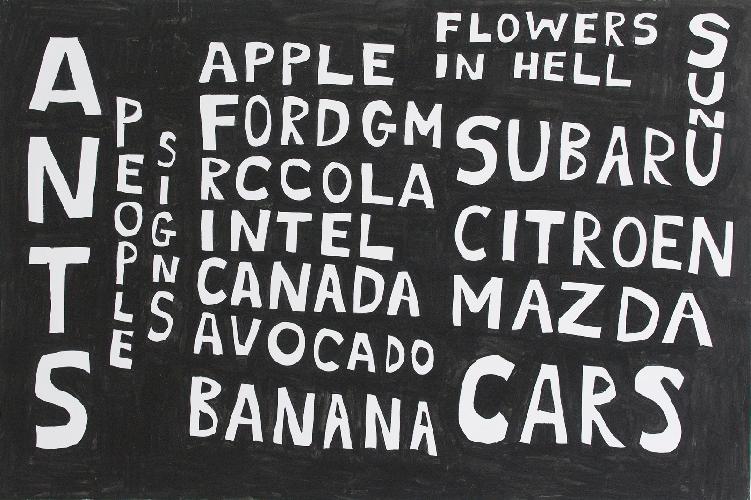 ANTS
PEOPLE
SIGNS
APPLE
FORD GM
RCCOLA
INTEL
CANADA
AVOCADO
BANANA
FLOWERS
IN HELL
SUNU
SUBARU
CITROEN
MAZDA
CARS